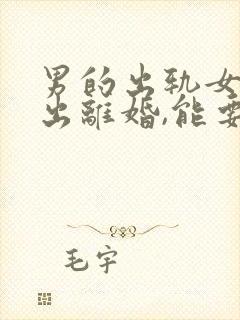 男的出轨女
出離婚,能要
毛宇